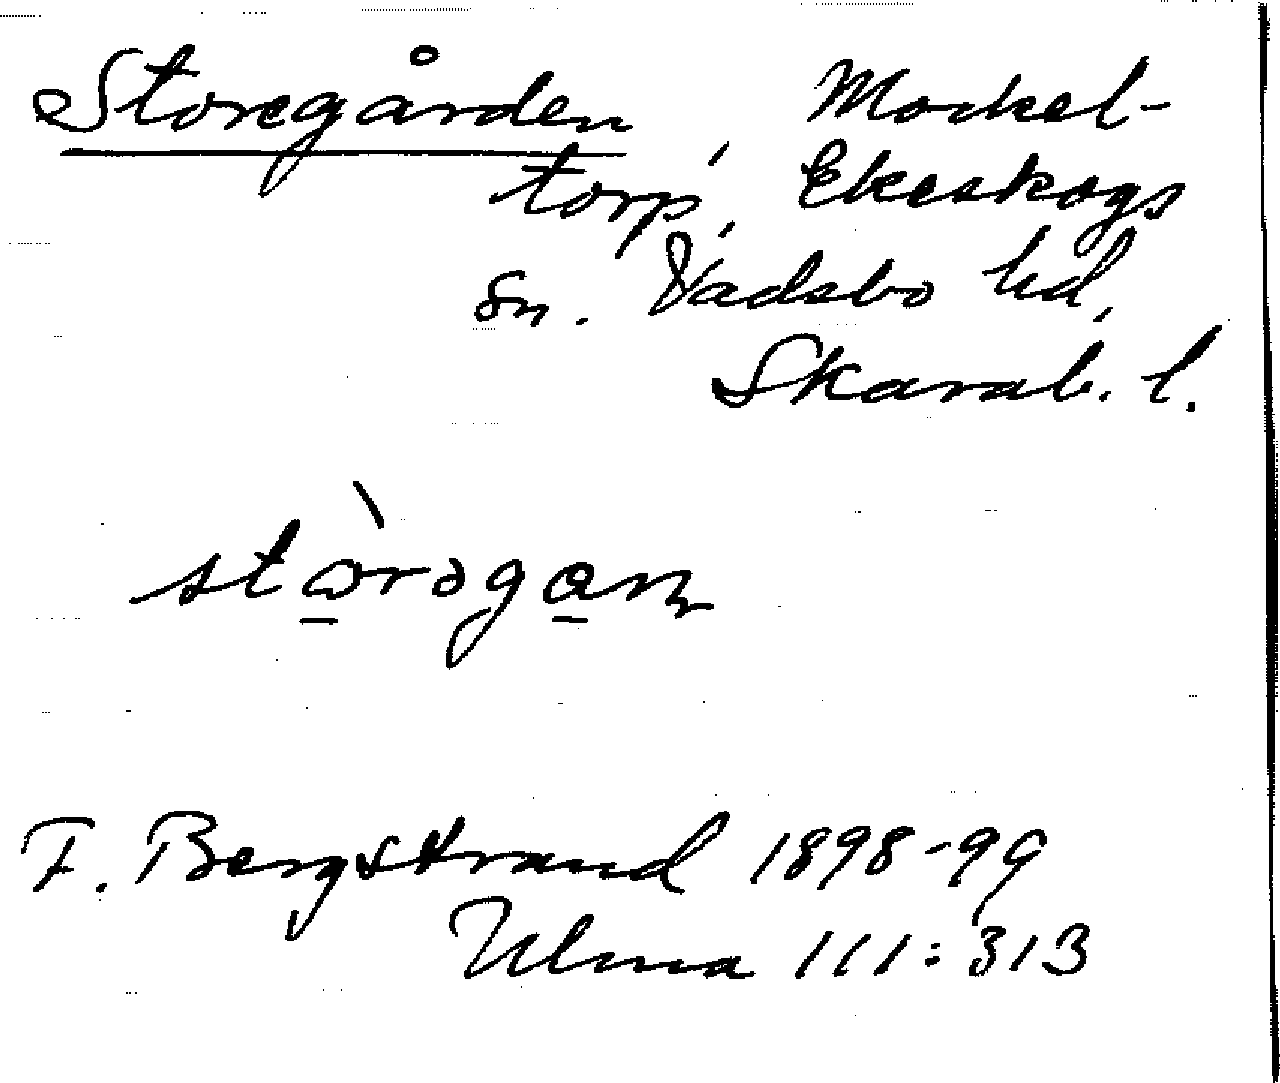 Storegården, Mockel-
torp, Ekeskogs
sn. Vadsbo hd,
Skarab. l.
F. Bergstrand 1898-99
Ulma 111:313